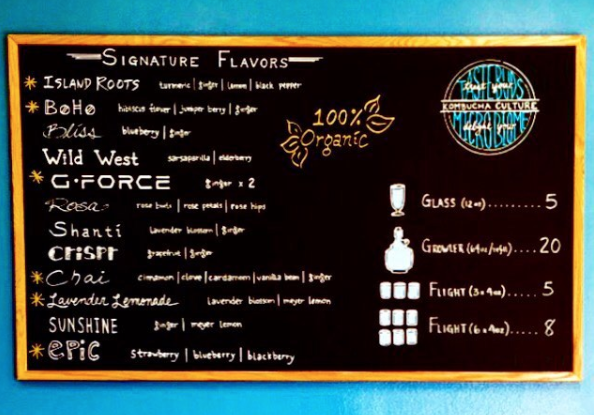 Signature Flavors
Island Roots turmeric | ginger | lemon | black pepper
BoHo hibiscus flower | juniper berry | ginger
Bliss blueberry | ginger
Wild West sarsaparilla | elderberry
G-FORCE ginger x 2
Rosa rose buds | rose petals | rose hips
Shanti lavender blossom | ginger
CRISPR grapefruit | ginger
Chai cinnamon | clove | cardamom | vanilla bean | ginger
Lavender Lemonade lavender blossom | meyer lemon
SUNSHINE ginger | meyer lemon
EPIC strawberry | blueberry | blackberry
100%
Organic
TASTEBUDS
trust your
KOMBUCHA CULTURE
delight your
MICROBIOME
Glass (12oz)......... 5
Growler (64oz/ ).... 20
Flight (3x4oz)..... 5
Flight (6x4oz)..... 8